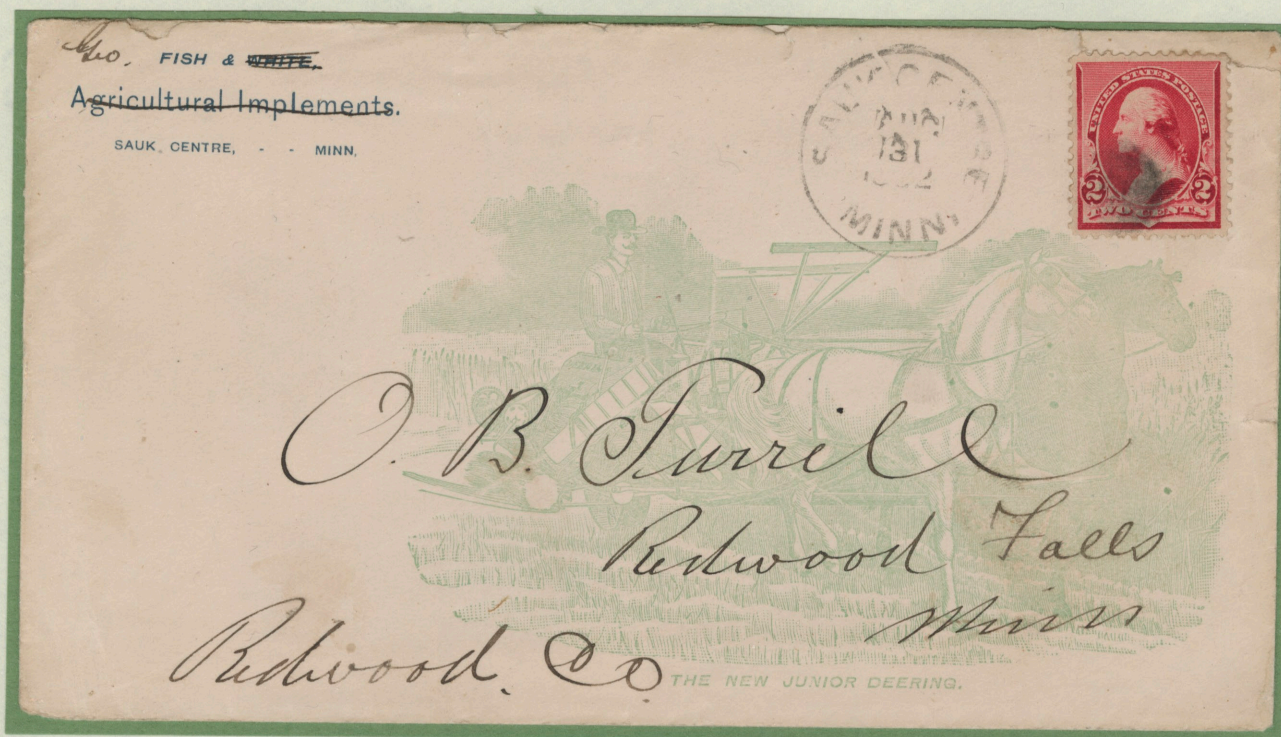 Geo. FISH & WHITE,
Agricultural Implements.
SAUK CENTRE, - - MINN.
SAUK CENTRE
31
MINN.
UNITED STATES POSTAGE
2 2
TWO CENTS
O. B. Turrill
Redwood Falls
Minn
Redwood. Co
THE NEW JUNIOR DEERING.